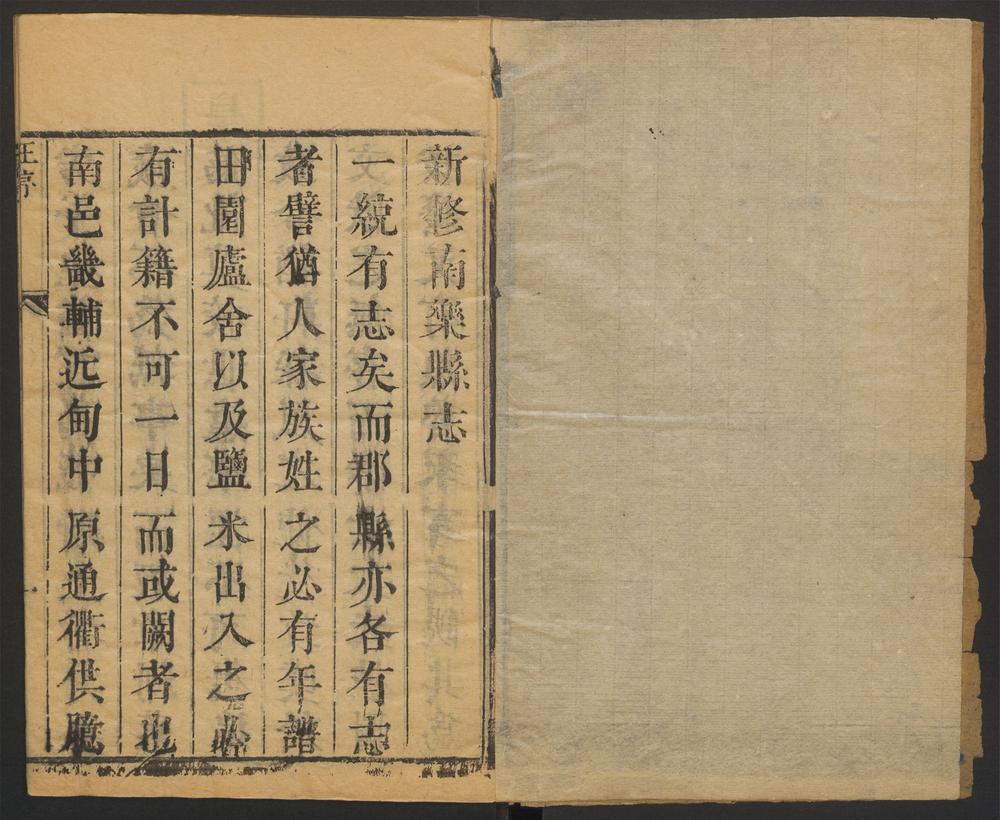 新修南樂縣志
一統有志矣而郡縣亦各有志
者譬猶人家族姓之必有年譜
田園廬舍以及鹽米出入之必
有計籍不可一日而或闕者也
南邑畿輔近甸中原通衢供應
序
一